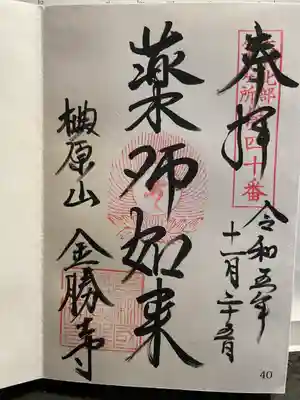 奉拝
北部
所第四十番
令和五年
十一月二十五日
薬師如来
椣原山 金勝寺
40